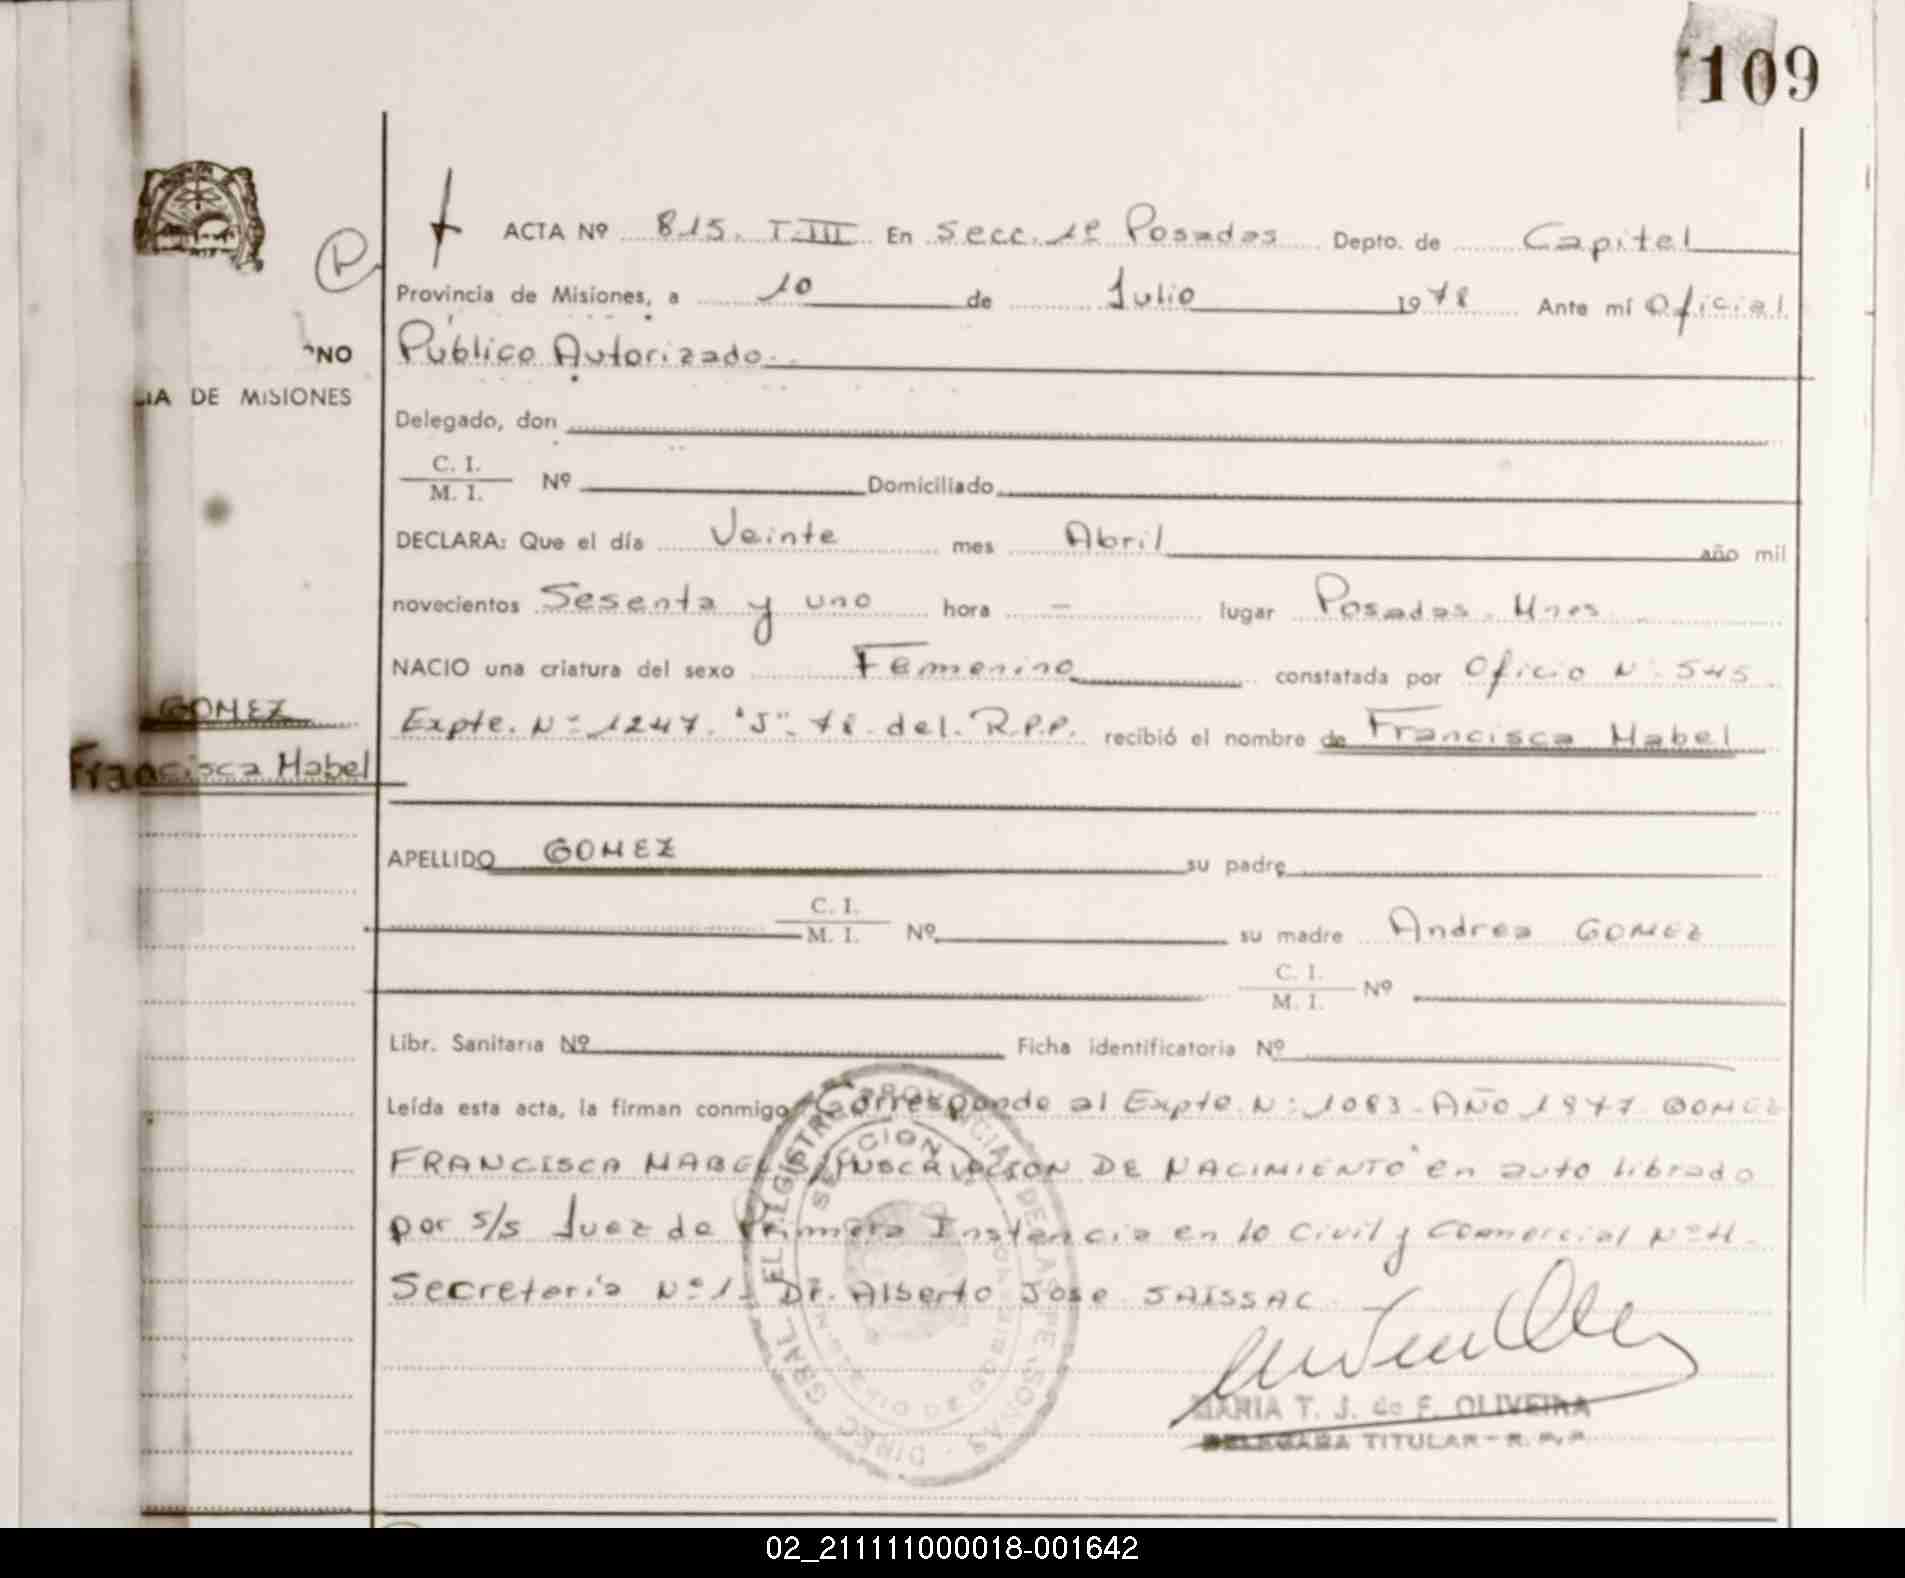 109
ACTA Nº 815. T.III En Secc. 1º Posadas Depto. de Capital
Provincia de Misiones, a 10 de Julio 1978 Ante mí Oficial
NO Público Autorizado.
IA DE MISIONES
Delegado, don
C. I.
M. I. Nº Domiciliado
DECLARA: Que el día Veinte mes Abril año mil
novecientos Sesenta y uno hora - lugar Posadas - Mnes
NACIO una criatura del sexo Femenino constatada por Oficio Nº 545
GOMEZ
Expte. Nº 1247. "J". 78. del. R.P.P. recibió el nombre de Francisca Mabel
Francisca Mabel
APELLIDO GOMEZ su padre
C. I.
M. I. Nº su madre Andrea GOMEZ
C. I.
M. I. Nº
Libr. Sanitaria Nº Ficha identificatoria Nº
Leída esta acta, la firman conmigo Corresponde al Expte. Nº 1083 - AÑO 1977 GOMEZ
FRANCISCA MABEL S/INSCRIPCION DE NACIMIENTO" en auto librado
por S/S Juez de Primera Instancia en lo Civil y Comercial Nº 4 -
Secretaría Nº 1 - Dr. Alberto Jose SAISSAC
DIREC. GRAL. DEL REGISTRO PROVINCIAL DE LAS PERSONAS
SECCION
MARIA T. J. de F. OLIVEIRA
DELEGADA TITULAR - R. P. P.
02_211111000018-001642